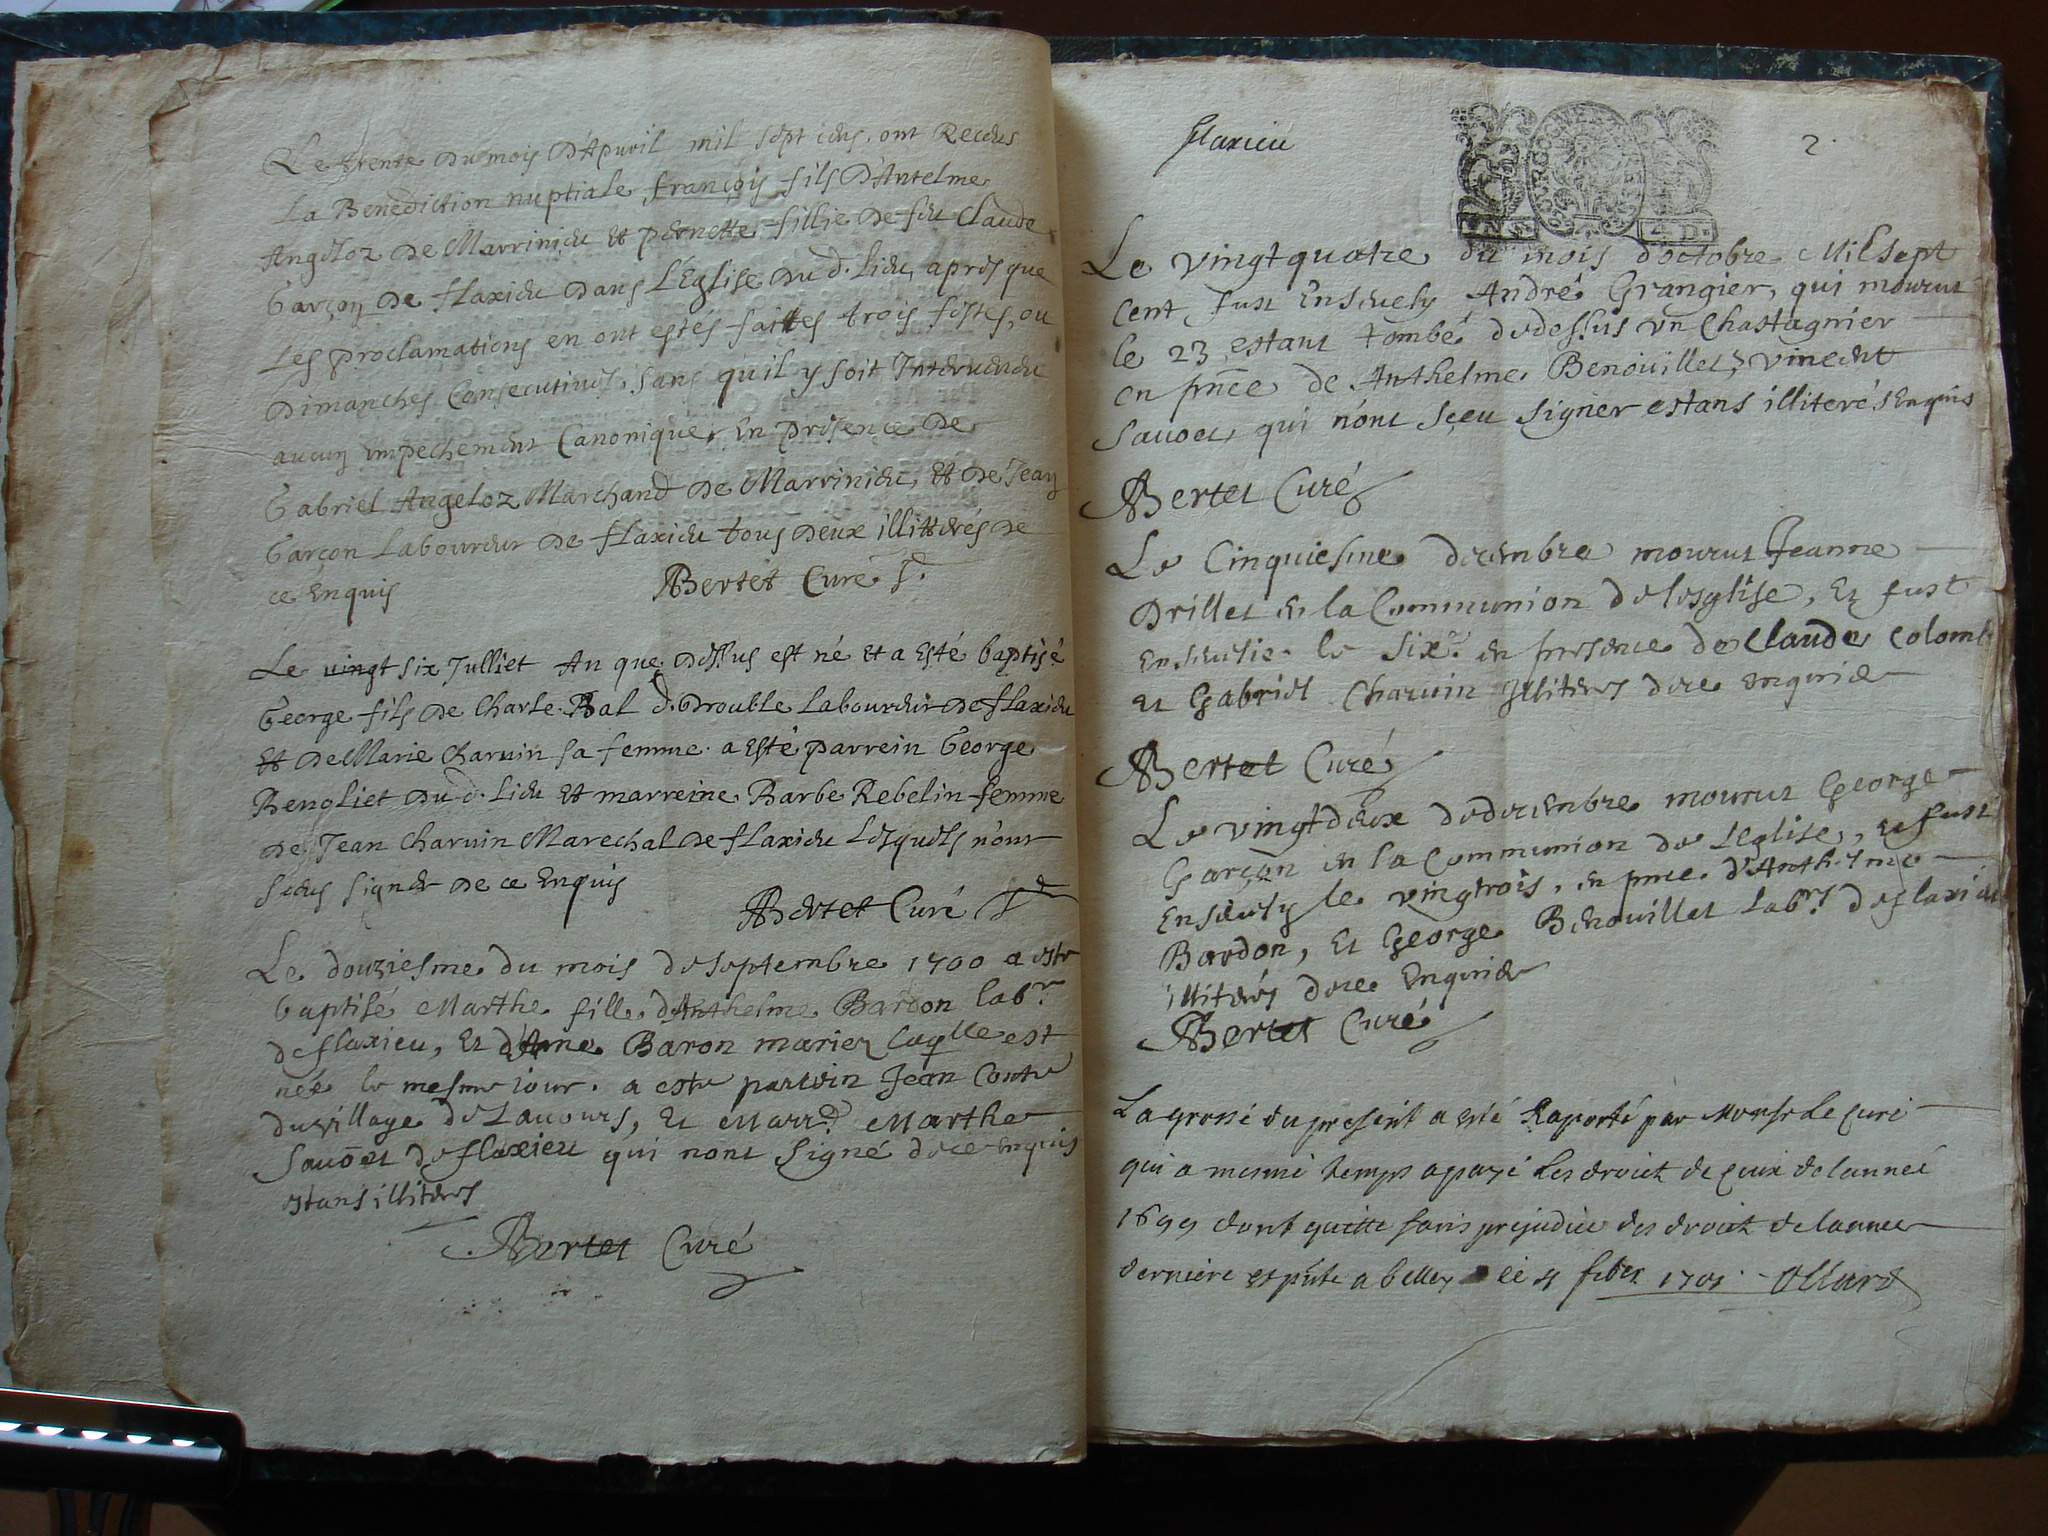 Le trente du mois d'Apuril mil sept cens, ont Receus
La Benediction nuptiale françois fils d'Antelme
Angeloz de Marrinieu et pernette fillie de feu Claude
Garçon de flaxieu dans L'Eglise du d. lieu, apres que
Les proclamations en ont estés faittes trois festes, ou
Dimanches Consecutives, sans qu'il y soit Interuenu
aucun empechement Canonique, En presence de
Gabriel Angeloz Marchand de Marrinieu, et de Jean
Garçon Laboureur de flaxieu tous deux illitterés de
ce Enquis
Bertet Curé
Le vingt six Julliet An que dessus est né et a Esté baptisé
George fils de Charle Bal d. Drouble Laboureur de flaxieu
et de Marie Charuin sa femme. a Esté parrein George
Bengliet du d. Lieu et marreine Barbe Rebelin femme
de Jean Charuin Marechal de flaxieu Lesquels n'ont
sceus signer de ce Enquis
Bertet Curé
Le douziesme du mois de septembre 1700 a este
baptisé Marthe fille d'Anthelme Bardon labr
de flaxieu, Et d'Anne Baron mariez laqlle est
née le mesme iour. a este parrein Jean Conte
du village de Lauours, Et Marr. Marthe
Sauoet de flaxieu qui nont Signé de ce enquis
estans illiteres
Bertet Curé
flaxieu
2.
Le vingt quatre du mois d'octobre Mil sept
Cent, fust Enseuely André Grangier, qui mourut
le 23 estant tombé de dessus un Chastagnier
en pnce de Anthelme Benouillet, & vincent
Sauoet, qui n'ont sçeu signer estans illiterés Enquis
Bertet Curé
Le Cinquiesme decembre mourut Jeanne
Drillet en la Communion de lesglise, Et fust
Enseuelie le six. en presence de Claude Colomb
et Gabriel Charuin Illiteres de ce enquis
Bertet Curé
Le vingtdeux de decembre mourut George
Garçon en la Communion de L'Eglise, et fust
Enseuely le vingtrois, en pnce d'Anthelme
Bardon, Et George Benouillet labrs de flaxieu
illiterés de ce Enquis
Bertet Curé
La grosse du present a esté Raporté par Monsr Le curé
qui a mesme temps a payé Les droict de ceux de lanneé
1699 dont quitte sans prejudice des droict de lannee
derniere et pnte a belley ce 4 feber 1701. Ollard